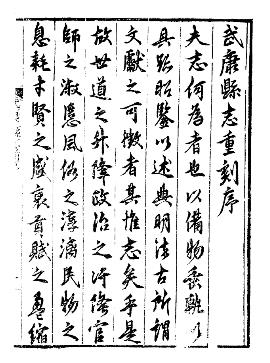 武康縣志重刻序
夫志何為者也以備物垂軌以
具號昭鑒以述典明法古所謂
文獻之可徵者其惟志矣乎是
故世道之升降政治之汙隆官
師之淑慝風俗之淳漓民物之
息耗才賢之盛衰貢賦之盈縮